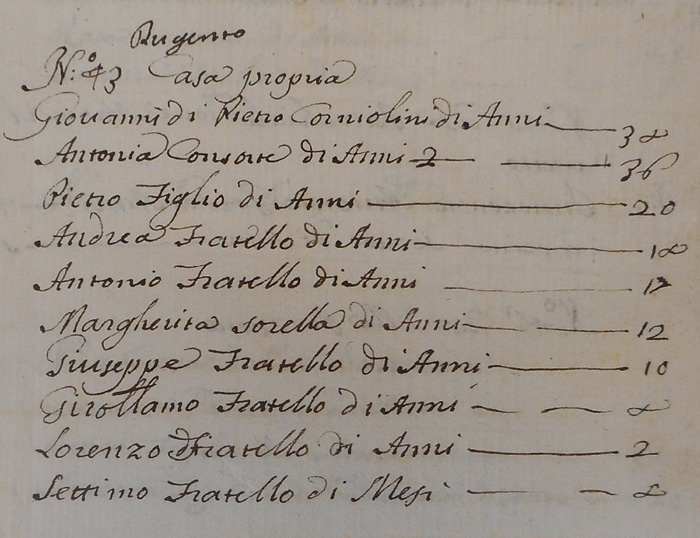 Rugento
N:º 43 Casa propria
Giovanni di Pietro Corniolini di Anni 38
Antonia Consorte di Anni 2 36
Pietro Figlio di Anni 20
Andrea Fratello di Anni 18
Antonio Fratello di Anni 17
Margherita sorella di Anni 12
Giuseppe Fratello di Anni 10
Girollamo Fratello di Anni 8
Lorenzo Fratello di Anni 2
Settimo Fratello di Mesi 8